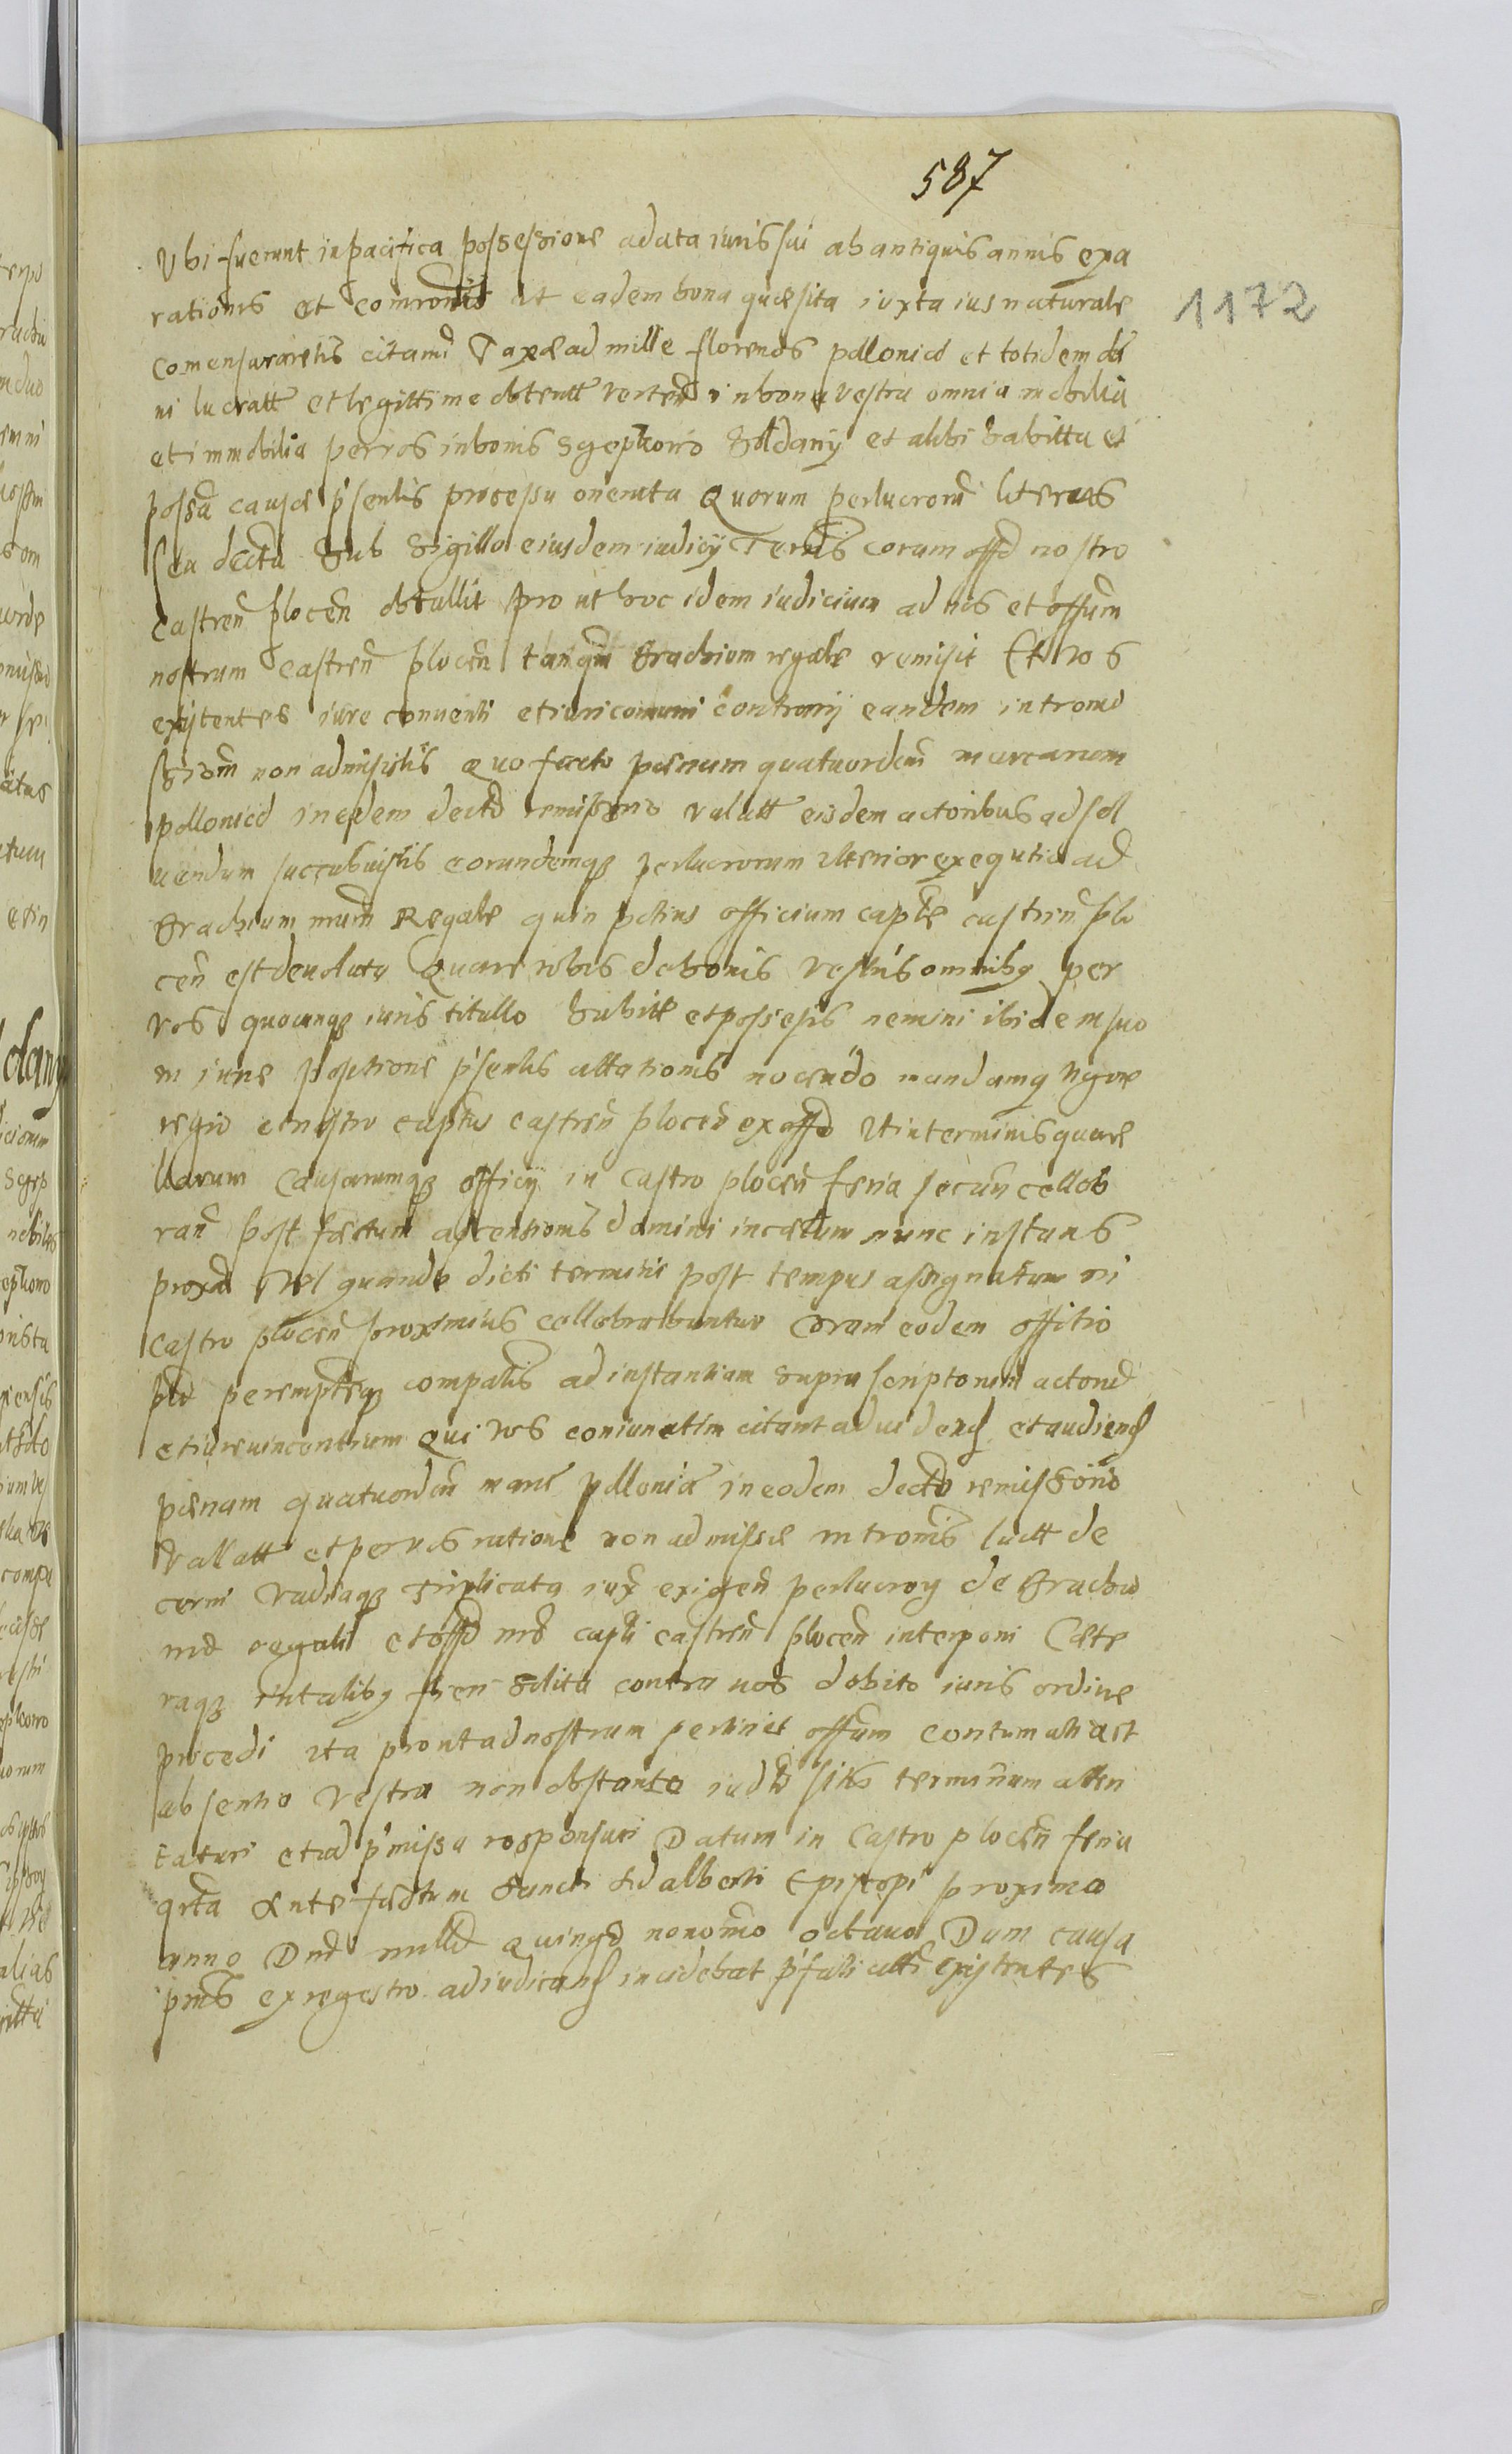 587
1172
Ubi fuerunt in pacifica possessione a data iuris sui ab antiquis annis exa
rationis et ut eadem bona quaesita iuxta ius naturale
comensuraretis citami Taxae ad mille florenos pollonicd et totidem da
ni lucratt et legittime obtentt verten in bona vestra omnia mobilia
et immobilia per vos in bonis Sgephowo Soldany et alibi habitta et
possa causae p'sentis processu onerata Quorum perlucrorum literas
seu decta Sub Sigillo eiusdem iudicij Terris coram offo nostro
castren plocen obtullit pro ut hoc idem iudicium ad nos et offum
nostrum Castren plocen tanqm brachium regale remisit Et vos
existentes iure conventi et iuri comuni contrarij eandem intromi
ssiom non admisistis quo facto poenam quatuordecim marcarum
pollonicd in eodem decto remissionis valatt eisdem actoribus ad sol
vendum succubuistis eorundemq3 perlucrorum ulterior exequtio ad
brachium nrum Regale quin potius officium capTe castren plo
cen est devoluta Quare vobis de bonis vestris omnibq per
vos quocunq3 iuris titullo habitt et possesis nemini ibidem suo
in iure p'sentis cittationis nocendo mandamq vigore
regio et nostro captus castren plocen ex offo Ut in terminis quere
llarum Causarumq3 officij in Castro plocen feria secun celleb
ran post festum ascensionis domini in caelum nunc instans
proxa vel quando dicti termini post tempus assignatum in
Castro plocen proximius cellebrabuntur Coram eodem offitio
compatis ad instantiam supra scriptorum actord
et iure vincentium Qui vos coniunctim citant ad viden et audien
poenam quatuordecim marc pollonic in eodem decto remissionis
vallatt et per vos ratione non admissae intromis luitt de
cerni vadiaq3 triplicata iux exigen perlucroq de brachio
nro regali et offo nro capli castren plocen interponi Caete
raq3 in talibq fieri solita contra vos debito iuris ordine
procedi ita prout ad nostrum pertinet offum contumati ast
absentia vestra non obstante iudto sitis terminum atten
taturi et ad p'missa responsuri Datum in Castro plocen feria
qrta Ante festum Sancti Adalberti Episcopi proximo
anno Dnd milld quingd nonomo octavo Dum causa
pns ex regestro adiudicand incidebat p'fati citti existentes